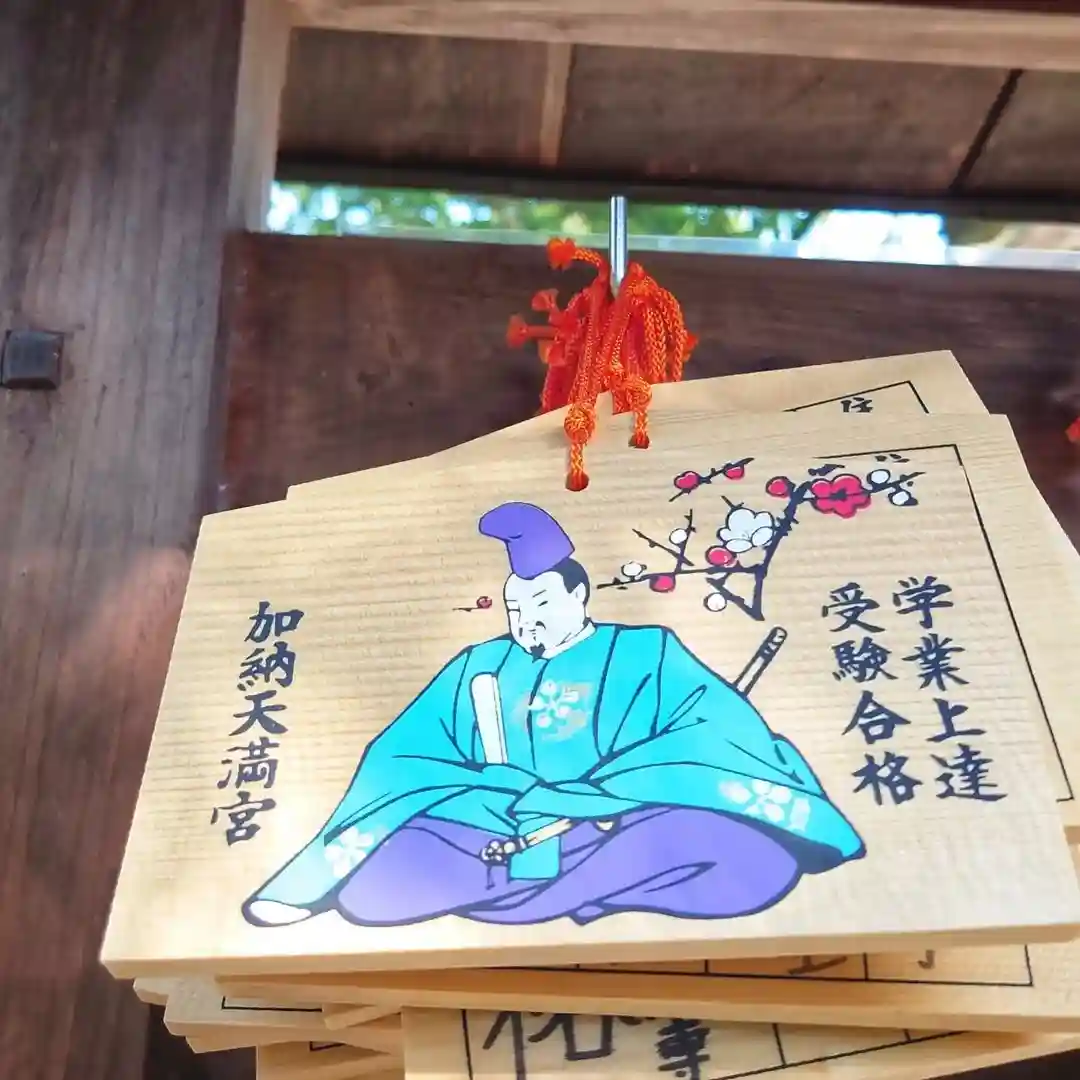 学業上達
受験合格
加納天満宮